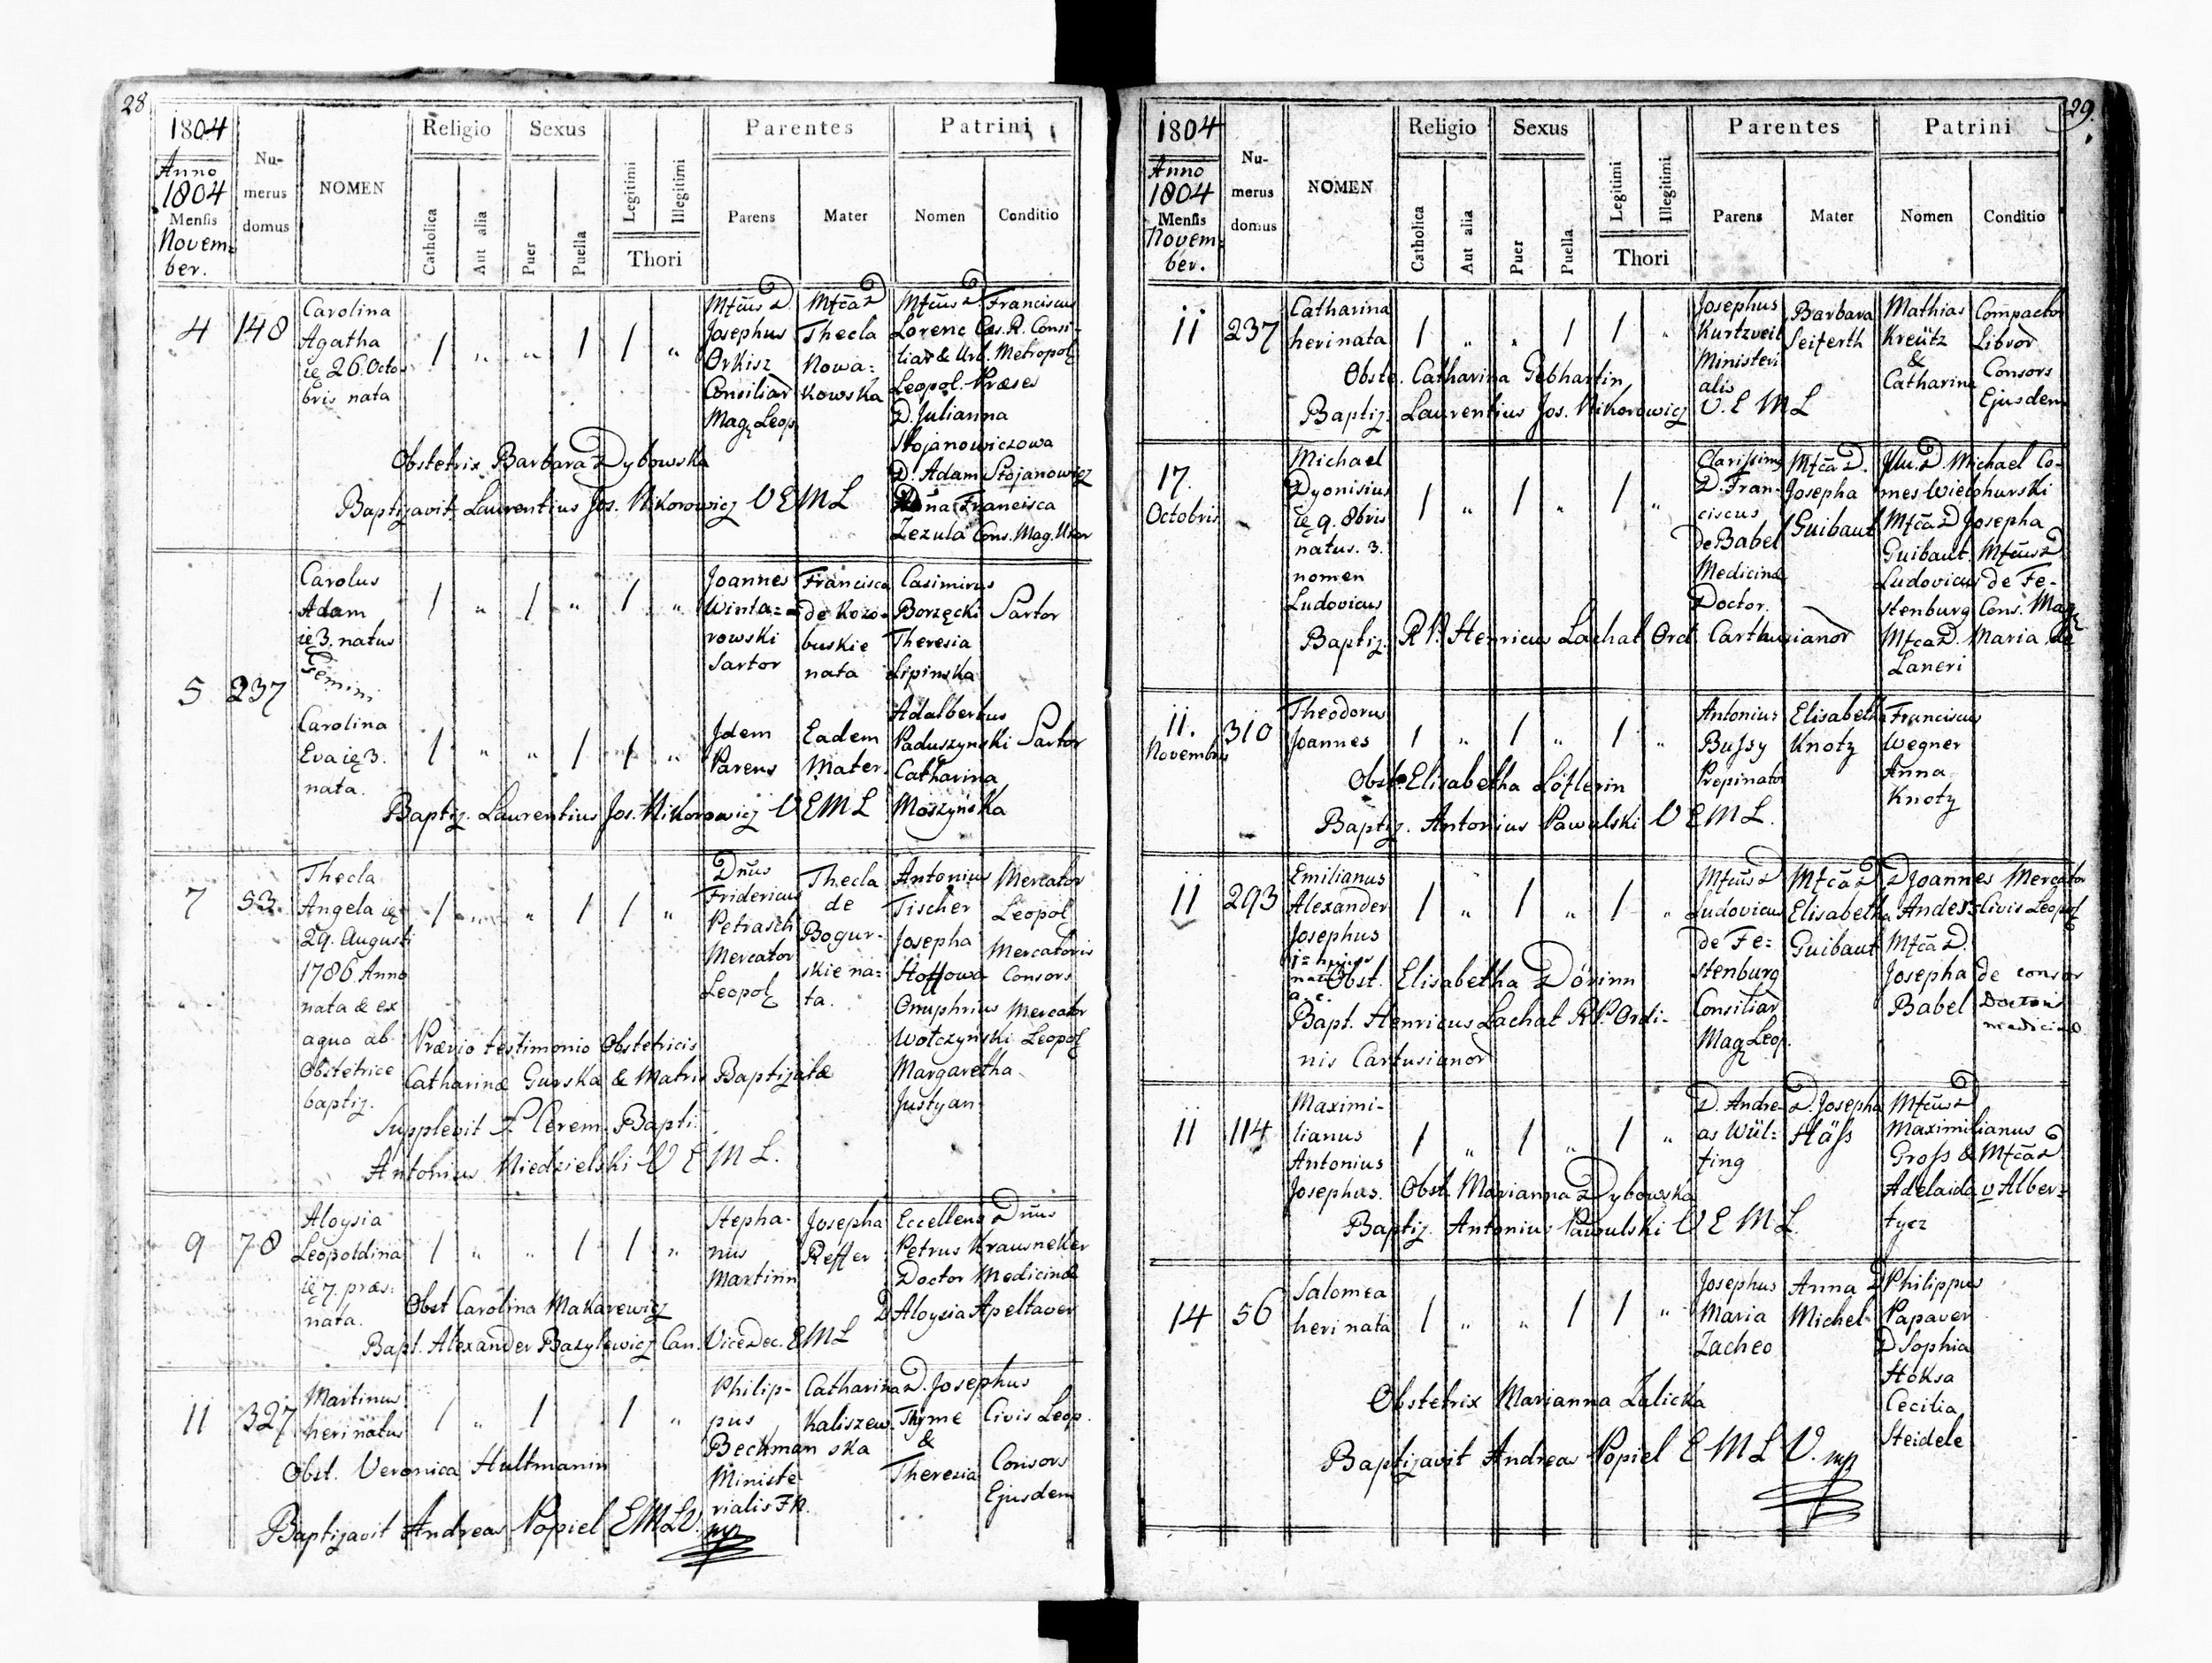 28
1804
Anno
1804
Mensis
Novem=
ber.
Nu-
merus
domus
NOMEN
Religio
Catholica
Aut alia
Sexus
Puer
Puella
Legitimi
Illegitimi
Thori
Parentes
Parens
Mater
Patrini
Nomen
Conditio
4
148
Carolina
Agatha
ię 26. Octo=
bris nata
Josephus
Orkisz
Consiliar
Mag. Leop.
Thecla
Nowa=
kowska
Franciscus
Lorenc Cæs. R. Consi-
liar & Urb. Metropol
Leopol. Præses
D. Julianna
Stojanowiczowa
D. Adam Stojanowicz
Francisca
Zezula Cons. Mag. Uxor
Obstetrix Barbara Dybowska
Baptizavit Laurentius Jos. Nikorowicz V E M L
5
237
Carolus
Adam
ię 3. natus
Gemini
Joannes
Winta=
rowski
Sartor
Francisca
de Kozo-
buskie
nata
Casimirus
Borzęcki Sartor
Theresia
Lipinska
Carolina
Eva ię 3.
nata.
Idem
Parens
Eadem
Mater.
Adalbertus
Paduszynski Sartor
Catharina
Moszyńska
Baptiz. Laurentius Jos. Nikorowicz V E M L
7
53.
Thecla
Angela ię
29. Augusti
1786 Anno
nata & ex
aqua ab
Obstetrice
baptiz.
Dnus
Fridericus
Petrasch
Mercator
Leopol
Thecla
de
Bogur-
skie na=
ta.
Antonius Mercator
Tischer Leopol
Josepha Mercatoris
Hoffowa Consors
Onuphrius Mercator
Wołczyński Leopol
Margaretha
Justyan
Prævio testimonio Obstetricis
Catharinæ Gurska & Matris Baptizatæ
Supplevit Cerem. Bapti.
Antonius Niedzielski V E M L.
9
78
Aloysia
Leopoldina
ię 7. præs:
nata.
Stepha-
nus
Martinn
Josepha
Reffer
Excellens Dnus
Petrus Krausneker
Doctor Medicinæ
D Aloysia Apeltauer
Obst Carolina Makarewicz
Bapt. Alexander Bazylewicz Can. Vice Dec. E M L
11
327
Martinus
heri natus
Philip-
pus
Beckman
Ministe
rialis
Catharina
Kaliszew-
ska
D. Josephus
Thyme Civis Leop.
&
Theresia Consors
Ejusdem
Obst. Veronica Hultmanin
Baptizavit Andreas Popiel E M L V. mp
29.
1804
Anno
1804
Mensis
Novem=
ber.
Nu-
merus
domus
NOMEN
Religio
Catholica
Aut alia
Sexus
Puer
Puella
Legitimi
Illegitimi
Thori
Parentes
Parens
Mater
Patrini
Nomen
Conditio
11
237
Catharina
heri nata
Josephus
Kurtzweil
Ministeri
alis
Barbara
Seiferth
Mathias Compactor
Kreütz Libror
&
Catharina Consors
Ejusdem
Obste. Catharina Gebhartin
Baptiz. Laurentius Jos. Nikorowicz V. E M L
17.
Octobris
Michael
Dyonisius
ię 9. 8bris
natus. 3.
nomen
Ludovicus
Clarissimus
D. Fran-
ciscus
de Babel
Medicinæ
Doctor.
Josepha
Guibaut
Michael Co-
mes Wielohurski
Josepha
Guibaut
Ludovicus de Fe-
stenburg Cons. Mag
Maria de
Laneri
Baptiz. R. P. Henricus Lachat Ord Carthusianor
11.
Novembris
310
Theodorus
Joannes
Antonius
Bussy
Propinator
Elisabetha
Knotz
Franciscus
Wegner
Anna
Knotz
Obst. Elisabetha Löflerin
Baptiz. Antonius Pawulski V E M L.
11
293
Emilianus
Alexander
Josephus
Ludovicus
de Fe=
stenburg
Consiliar
Mag Leop.
Elisabetha
Guibaut
D Joannes Mercator
Anders Civis Leopol
Josepha de consor
Babel Doctoris
medicinæ
Obst. Elisabetha Dörinn
Bapt. Henricus Lachat R P. Ordi-
nis Cartusianor
11
114
Maximi-
lianus
Antonius
Josephus.
D. Andre-
as Wül=
fing
D. Josepha
Häss
Maximilianus
Gross &
Adelaida v Alber=
tycz
Obst. Marianna Dybowska
Baptiz. Antonius Pawulski V E M L.
14
56
Salomea
heri nata
Josephus
Maria
Zacheo
Anna
Michel
D Philippus
Papaver
D Sophia
Hoksa
Cecilia
Steidele
Obstetrix Marianna Zalicka
Baptizavit Andreas Popiel E M L V. mp